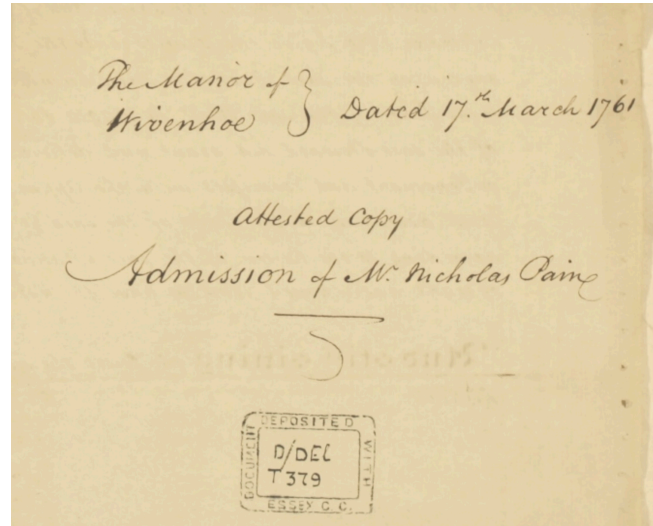 The Manor of
Wivenhoe } Dated 17.th March 1761
Attested Copy
Admission of Mr. Nicholas Paine
DOCUMENT DEPOSITED WITH
D/DEL
T379
ESSEX C. C.